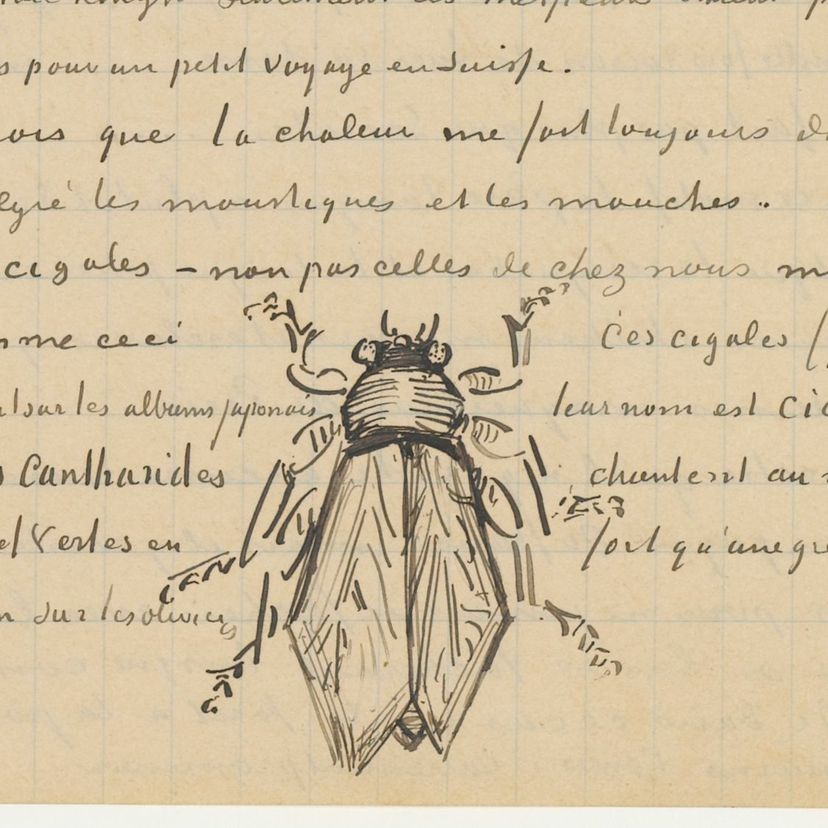 s pour un petit voyage en Suisse.
ois que la chaleur me fait toujours d
lgré les moustiques et les mouches.
cigales – non pas celles de chez nous m
me ceci Ces cigales (
sur les albums japonais leur nom est Cic
Cantharides chantent au
et Vertes en fort qu'une gre
n sur les oliviers